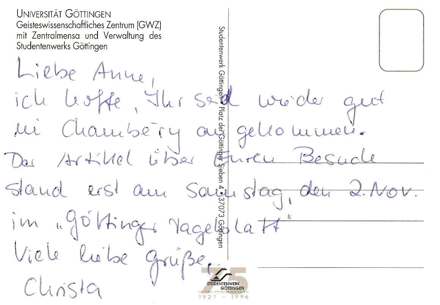 UNIVERSITÄT GÖTTINGEN
Geisteswissenschaftliches Zentrum (GWZ)
mit Zentralmensa und Verwaltung des
Studentenwerks Göttingen
Liebe Anne,
ich hoffe, Ihr seid wieder gut
in Chambéry angekommen.
Der Artikel über Euren Besuch
stand erst am Samstag, den 2. Nov.
im „Göttinger Tageblatt"
Viele liebe Grüße,
Christa
Studentenwerk Göttingen · Platz der Göttinger Sieben 4 · 37073 Göttingen
75
STUDENTENWERK
GÖTTINGEN
1921 - 1996